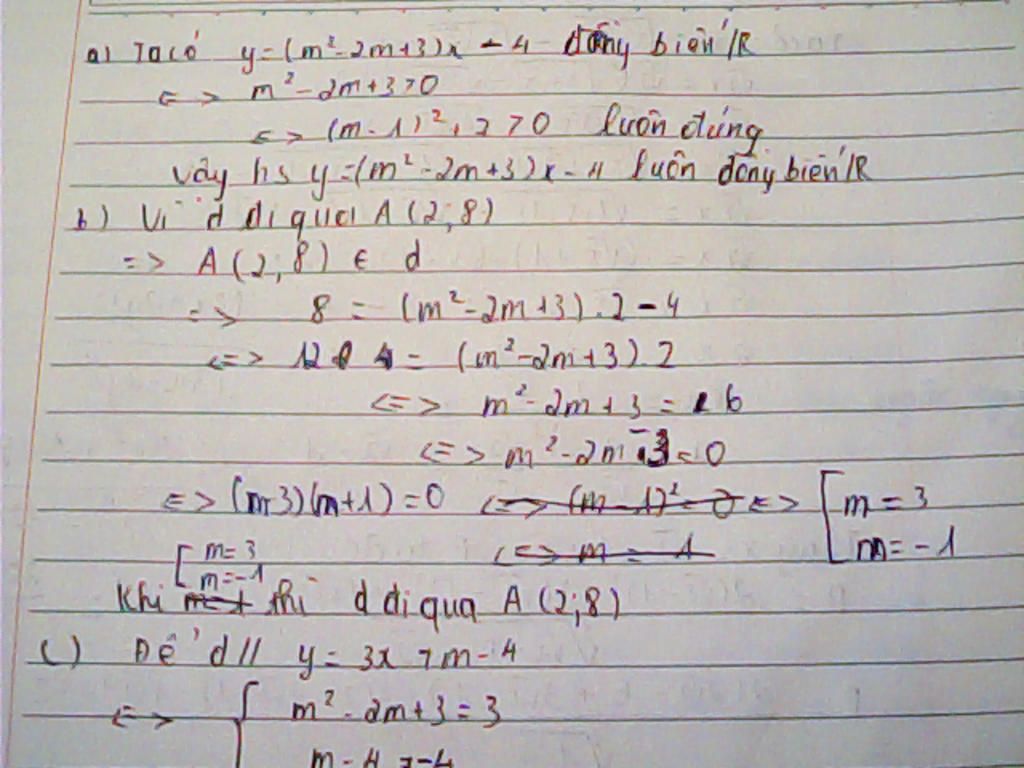 a) Ta có y=(m²-2m+3)x - 4 đồng biến/R
<=> m²-2m+3>0
<=> (m-1)²+2>0 luôn đúng
Vậy hs y=(m²-2m+3)x-4 luôn đồng biến/R
b) Vì d đi qua A(2;8)
=> A(2;8) ∈ d
=> 8 = (m²-2m+3).2-4
<=> 12 = (m²-2m+3).2
<=> m²-2m+3 = 6
<=> m²-2m-3=0
<=> (m-3)(m+1)=0 <=> [m=3
m=-1
[m=3
m=-1
Khi thì d đi qua A(2;8)
c) Để d// y=3x+m-4
<=> { m²-2m+3=3
m-4≠-4